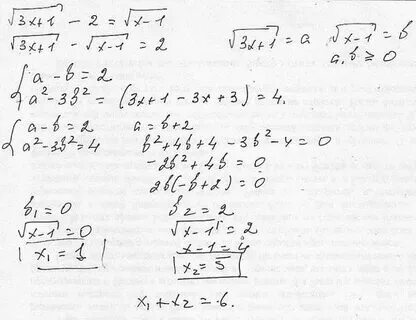 √3x+1 - 2 = √x-1
√3x+1 - √x-1 = 2
√3x+1 = a √x-1 = b
a, b ≥ 0
{ a-b=2
a²-3b² = (3x+1-3x+3) = 4.
{ a-b=2 a=b+2
a²-3b²=4 b²+4b+4-3b²-4=0
-2b²+4b=0
2b(-b+2)=0
b₁=0 b₂=2
√x-1=0 √x-1=2
x₁=1 x-1=4
x₂=5
x₁+x₂=6.